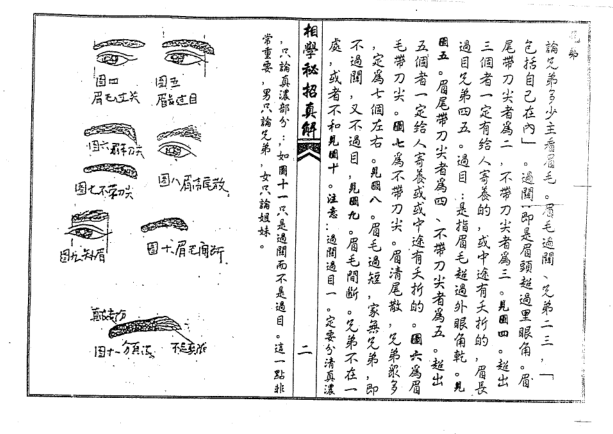 兄弟
論兄弟多少主看眉毛。眉毛過關、兄弟二三,「
包括自己在內」。過關:即是眉頭超過里眼角。眉
尾帶刀尖者為二,不帶刀尖者為三。見圖四。超出
三個者一定有給人寄養的,或中途有夭折的,眉長
過目兄弟四五。過目:是指眉毛超過外眼角乾。見
圖五。眉尾帶刀尖者為四、不帶刀尖者為五。超出
五個者一定給人寄養或或中途有夭折的。圖六為眉
毛帶刀尖。圖七為不帶刀尖。眉清尾散,兄弟眾多
,定為七個左右。見圖八。眉毛過短,家無兄弟,即
不過關,又不過目,見圖九。眉毛間断。兄弟不在一
處,或者不和見圖十。注意:過關過目一定要分清真濃
相學秘招真解
二
,只論真濃部分:,如圖十一只是過關而不是過目。這一點非
常重要,男只論兄弟,女只論姐妹。
图五
眉長过目
图四
眉毛过关
图六 帶刀尖
图七不帶刀尖
图八眉清尾散
图九 眉
图十眉毛间断
图十一